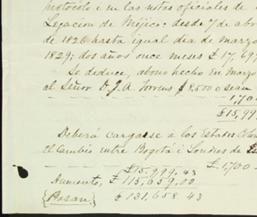 protocolo i en las notas oficiales de
Legacion de Mejico: desde 7 de abr
de 1826 hasta igual dia de marzo
1829; dos años once meses £ 17,69
Se deduce, abono hecho en marzo
al Señor D. J. A. Torrens $ 8,500 o sean
1,700
£ 15,99
Deberá cargarse a los Estados
el cambio entre Bogotá i Londres de
£ 1,700
£ 15,999.43
Aumento, £ 115,659.00
Pasan £ 131,658 43